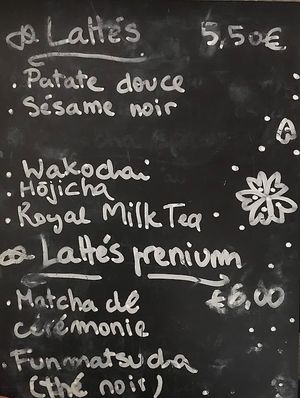 Lattés 5,50€
• Patate douce
• Sésame noir
• Wakochai
• Hōjicha
• Royal Milk Tea
Lattés prenium
• Matcha de €6,00
cérémonie
• Funmatsucha
(thé noir)